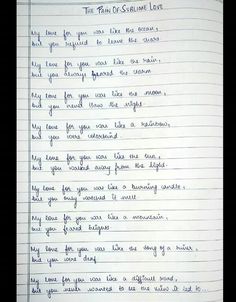 The Pain Of Sublime Love
My love for you was like the ocean,
but you refused to leave the shore
My love for you was like the rain,
but you always feared the storm
My love for you was like the moon,
but you never saw the night.
My love for you was like a rainbow,
but you were colorblind.
My love for you was like the sun,
but you walked away from the light.
My love for you was like a burning candle,
but you only watched it melt
My love for you was like a mountain,
but you feared heights
My love for you was like the song of a river,
but you were deaf
My love for you was like a difficult road,
but you never wanted to see the view it led to...